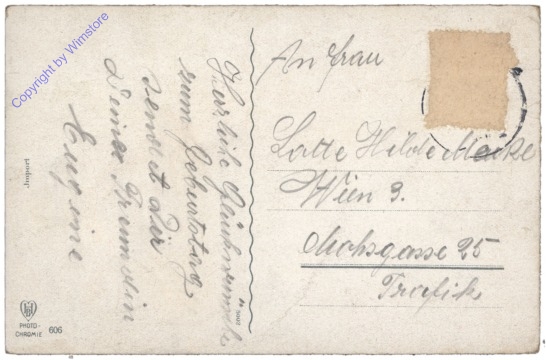 Herzliche Glückwünsche
zum Geburtstag
sendet dir
Deine Freundin
Eugenie
An Frau
Lotte Hilde
Wien 3.
Mohsgasse 25
Trafik
Import
PHOTO-
CHROMIE 606
Copyright by Wimstore